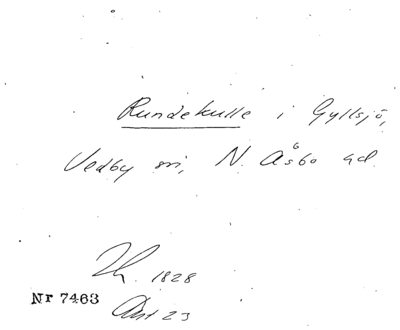 Rundekulle i Gyllsjö,
Vedby sn, N. Åsbo hd.
1828
Nr 7463
23